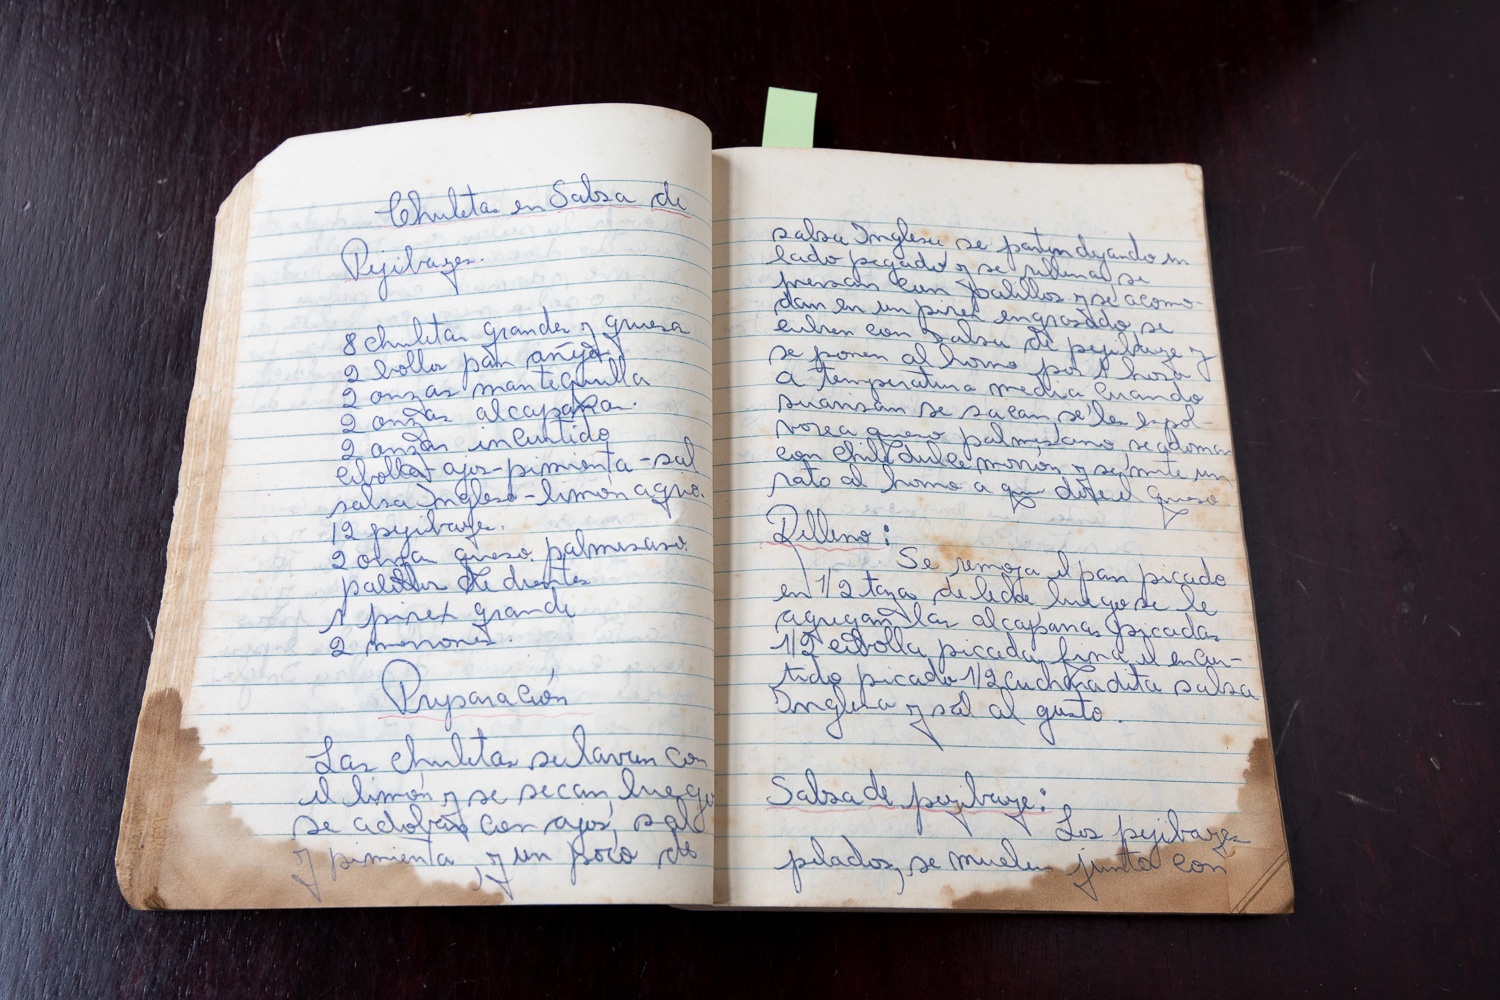 Chuletas en Salsa de
Pejibayes.
8 chuletas grandes y gruesa
2 bollos pan añejo
2 onzas mantequilla
2 onzas alcaparras.
2 onzas incurtido
cibolla - ajos - pimienta - sal
salsa Inglesa - limón agrio.
12 pejibayes.
2 onza queso palmesaso.
palillos de dientes
1 pirex grande
2 morrones.
Preparación
Las chuletas se lavan con
el limón y se secan, luego
se adoban con ajos, sal
y pimienta, y un poco de
salsa Inglesa se parten dejando un
lado pegado y se rellenas se
prensan con palillos y se acomo-
dan en un pirex engrasado, se
cubren con salsa de pejibaye y
se ponen al horno por 1 hora
a temperatura media cuando
suavisan se sacan se les espol-
vorea queso palmesano, se adornan
con chile dulce morrón y se mete un
rato al horno a que dore el queso
Relleno:
Se remoja el pan picado
en 1/2 taza de leche luego se le
agregan las alcaparras picadas
1/2 cibolla picada fina, el encur-
tido picado 1/2 cucharadita salsa
Inglesa y sal al gusto.
Salsa de pejibaye:
Los pejibayes
pelados, se muelen junto con